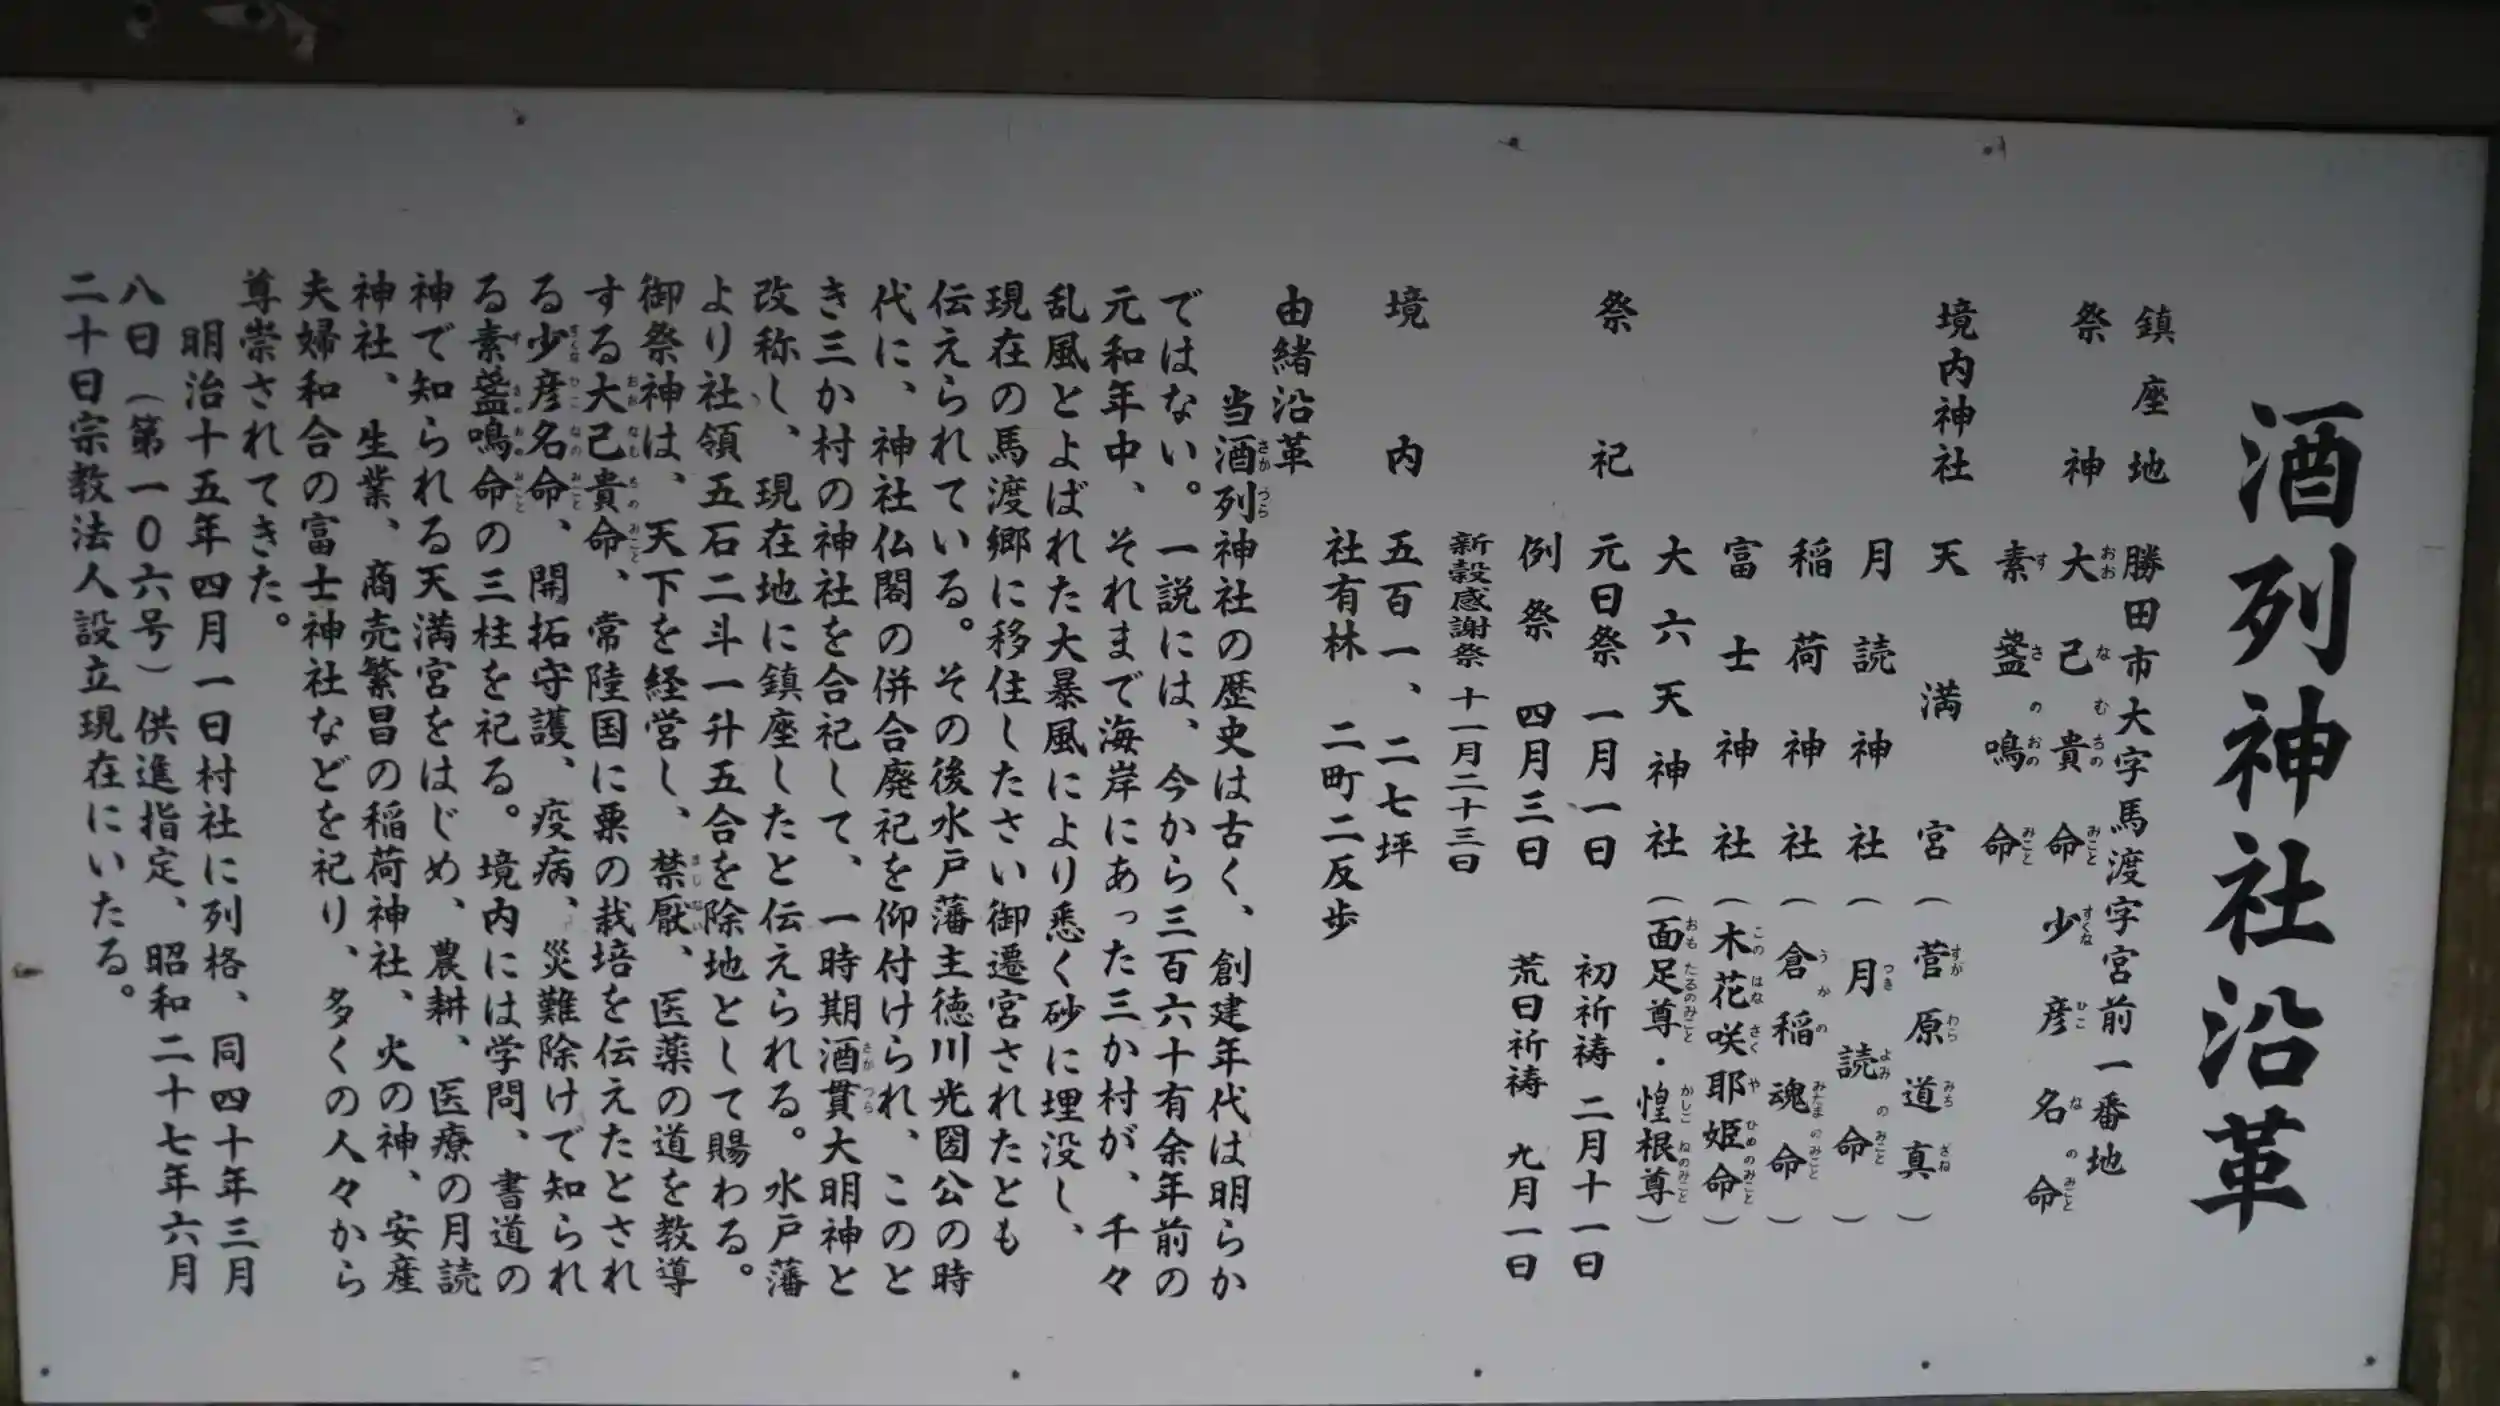 酒列神社沿革
鎮座地 勝田市大字馬渡字宮前一番地
祭神 大己貴命 少彦名命
素盞鳴命
境内神社 天満宮（菅原道真）
月読神社（月読命）
稲荷神社（倉稲魂命）
富士神社（木花咲耶姫命）
大六天神社（面足尊・惶根尊）
祭祀 元旦祭 一月一日 初祈祷 二月十一日
例祭 四月三日 荒日祈祷 九月一日
新穀感謝祭 十一月二十三日
境内 五百一、二七坪
社有林 二町二反歩
由緒沿革
当酒列神社の歴史は古く、創建年代は明らか
ではない。一説には、今から三百六十有余年前の
元和年中、それまで海岸にあった三か村が、千々
乱風とよばれた大暴風により悉く砂に埋没し、
現在の馬渡郷に移住したさい御遷宮されたとも
伝えられている。その後水戸藩主徳川光圀公の時
代に、神社仏閣の併合廃祀を仰付けられ、このと
き三か村の神社を合祀して、一時期酒貫大明神と
改称し、現在地に鎮座したと伝えられる。水戸藩
より社領五石二斗一升五合を除地として賜わる。
御祭神は、天下を経営し、禁厭、医薬の道を教導
する大己貴命、常陸国に粟の栽培を伝えたとされ
る少彦名命、開拓守護、疫病、災難除けで知られ
る素盞鳴命の三柱を祀る。境内には学問、書道の
神で知られる天満宮をはじめ、農耕、医療の月読
神社、生業、商売繁昌の稲荷神社、火の神、安産
夫婦和合の富士神社などを祀り、多くの人々から
尊崇されてきた。
明治十五年四月一日村社に列格、同四十年三月
八日（第一〇六号）供進指定、昭和二十七年六月
二十日宗教法人設立現在にいたる。